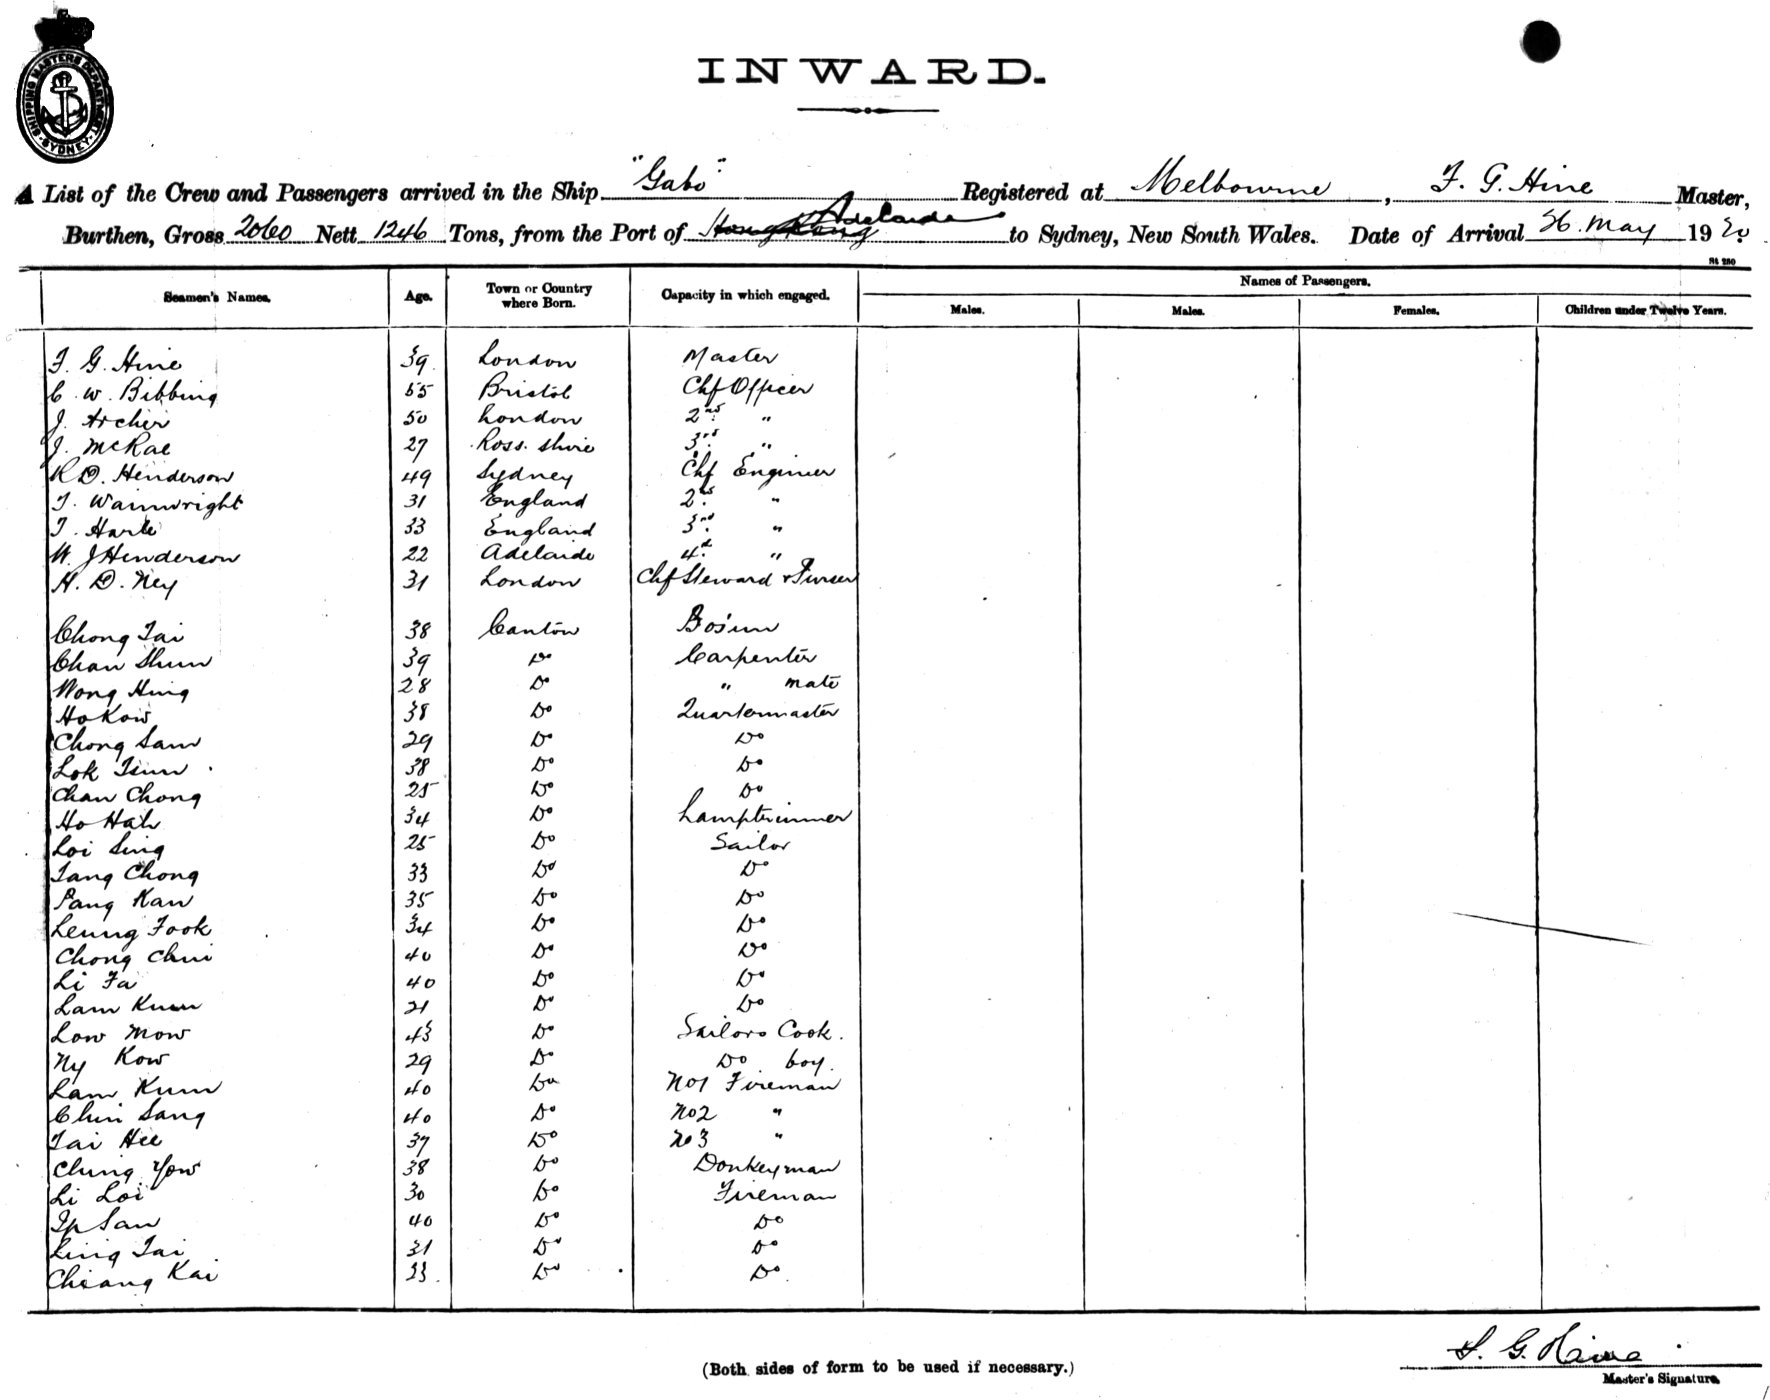 SHIPPING MASTERS DEPARTMENT SYDNEY
INWARD.
A List of the Crew and Passengers arrived in the Ship "Gabo" Registered at Melbourne, F. G. Hine Master,
Burthen, Gross 2060 Nett 1246 Tons, from the Port of Hong Kong Adelaide to Sydney, New South Wales. Date of Arrival 26. May 1920.
St 280
Seamen's Names. Age. Town or Country where Born. Capacity in which engaged. Names of Passengers.
Males. Males. Females. Children under Twelve Years.
F. G. Hine 39 London Master
C. W. Bibbing 55 Bristol Chf Officer
J. Archer 50 London 2nd "
J. McRae 27 Ross. shire 3rd "
R D. Henderson 49 Sydney Chf Engineer
T. Wainwright 31 England 2nd "
T. Harle 33 England 3rd "
W. J Henderson 22 Adelaide 4th "
H. D. Ney 31 London Chf Steward & Purser
Chong Tai 38 Canton Bo'sun
Chan Shun 39 Do Carpenter
Wong Hing 28 Do " mate
Ho Kow 38 Do Quartermaster
Chong Sam 29 Do Do
Lok Tsun 38 Do Do
Chan Chong 25 Do Do
Ho Hah 34 Do Lamptrimmer
Loi Sing 25 Do Sailor
Tang Chong 33 Do Do
Pang Kan 35 Do Do
Leung Fook 34 Do Do
Chong Chui 40 Do Do
Li Fa 40 Do Do
Lam Kuen 21 Do Do
Low Mow 43 Do Sailors Cook.
Ny Kow 29 Do Do boy.
Lam Kum 40 Do No1 Fireman
Chin Sang 40 Do No2 "
Tai Hee 37 Do No3 "
Ching Yow 38 Do Donkeyman
Li Loi 30 Do Fireman
Ip San 40 Do Do
Ling Tai 31 Do Do
Cheang Kai 33. Do Do.
(Both sides of form to be used if necessary.)
F. G. Hine
Master's Signature.